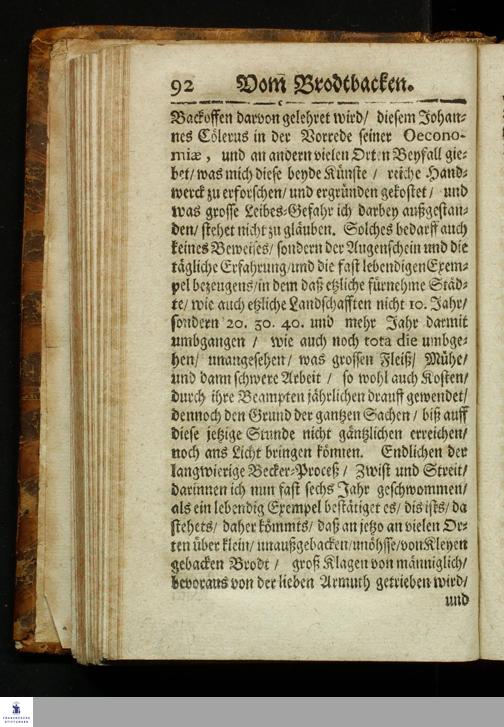 92 Vom̃ Brodtbacken.
Backoffen darvon gelehret wird/ diesem Johan-
nes Cölerus in der Vorrede seiner Oecono-
miæ, und an andern vielen Orten Beyfall gie-
bet/ was mich diese beyde Künste / reiche Hand-
werck zu erforschen/ und ergründen gekostet / und
was grosse Leibes-Gefahr ich darbey außgestan-
den/ stehet nicht zu gläuben. Solches bedarff auch
keines Beweises/ sondern der Augenschein und die
tägliche Erfahrung/und die fast lebendigen Exem-
pel bezeugens/in dem daß etzliche fürnehme Städ-
te/ wie auch etzliche Landschafften nicht 10. Jahr/
sondern 20. 30. 40. und mehr Jahr darmit
umbgangen / wie auch noch tota die umbge-
hen/ unangesehen/ was grossen Fleiß/ Mühe/
und dann schwere Arbeit / so wohl auch Kosten/
durch ihre Beampten jährlichen drauff gewendet/
dennoch den Grund der gantzen Sachen / biß auff
diese jetzige Stunde nicht gäntzlichen erreichen/
noch ans Licht bringen können. Endlichen der
langwierige Becker-Proceß / Zwist und Streit/
darinnen ich nun fast sechs Jahr geschwommen/
als ein lebendig Exempel bestätiget es/ dis ists/ da
stehets/ daher kömmts/ daß an jetzo an vielen Or-
ten über klein/ unaußgebacken/unöhsse/von Kleyen
gebacken Brodt / groß Klagen von männiglich/
bevoraus von der lieben Armuth getrieben wird/
und
FRANCKESCHE
STIFTUNGEN